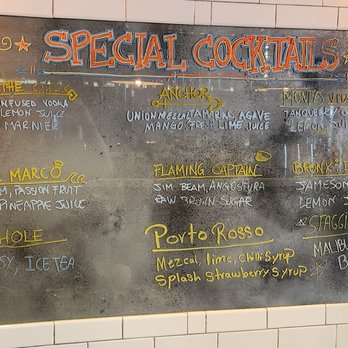 SPECIAL COCKTAILS
THE
INFUSED VODKA
LEMON JUICE
MARNIER
ANCHOR
UNION MEZCAL TAMARIND AGAVE
MANGO, FRESH LIME JUICE
MONTYS
TANQUERAY
LEMON JUICE
MARCO
PASSION FRUIT
PINEAPPLE JUICE
FLAMING CAPTAIN
JIM BEAM, ANGOSTURA
RAW BROWN SUGAR
BRONX
JAMESON
LEMON J
HOLE
ICE TEA
Porto Rosso
Mezcal, lime, Chilli Syrup
Splash Strawberry Syrup
STAGG
MALIBU
B